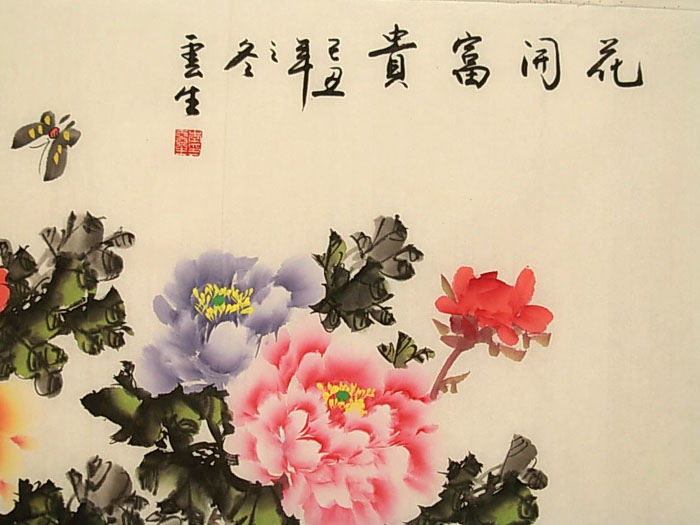 花開富貴
己丑年之冬
雲生